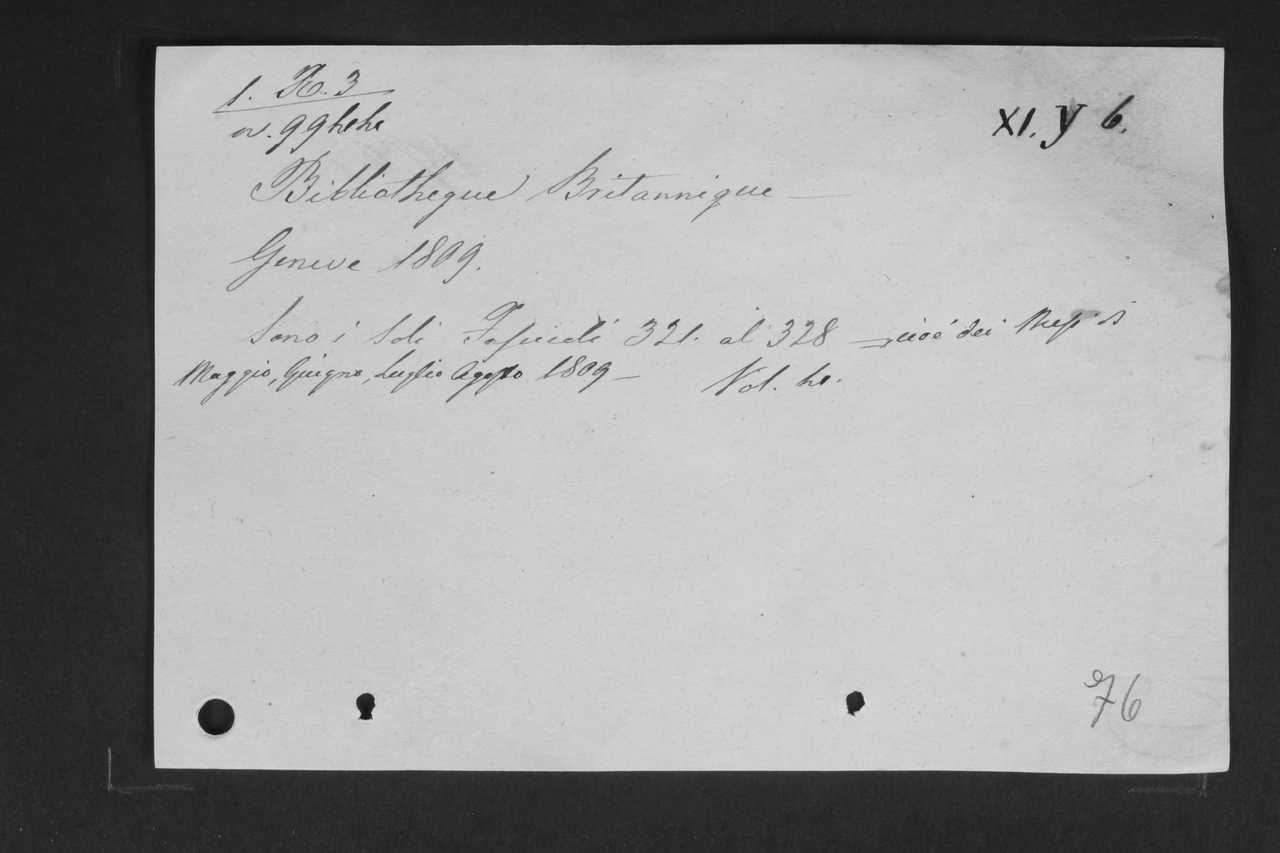 1. 3
XI. Y 6.
Bibliotheque Britannique —
Geneve 1809.
Sono i soli Fascicoli 321. al 328 — cioè dei Mesi di
Maggio, Giugno, Luglio Agosto 1809 — Vol. 4.
76